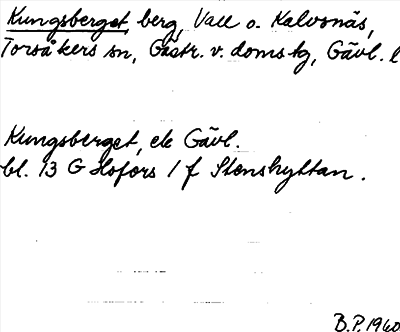 Kungsberget, berg, Vall o. Kalvsnäs,
Torsåkers sn, Gästr. v. doms tg, Gävl. l
Kungsberget, ek Gävl.
bl. 13 G Hofors 1 f Stenshyttan.
B.P. 1960